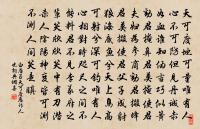 天可度地可量唯有人
心不可防但見丹誠赤
如血誰知偽言巧似簧
勸君掩鼻君莫掩使君
夫婦為參商勸君掇蜂
君莫掇使君父子成豺
狼海底魚兮天上鳥高
可射兮深可釣唯有人
心相對時咫尺之間不
能料君不見李義府之
輩笑欣欣笑中有刀潛
殺人陰陽神變皆可測
不測人間笑是瞋
白居易天可度